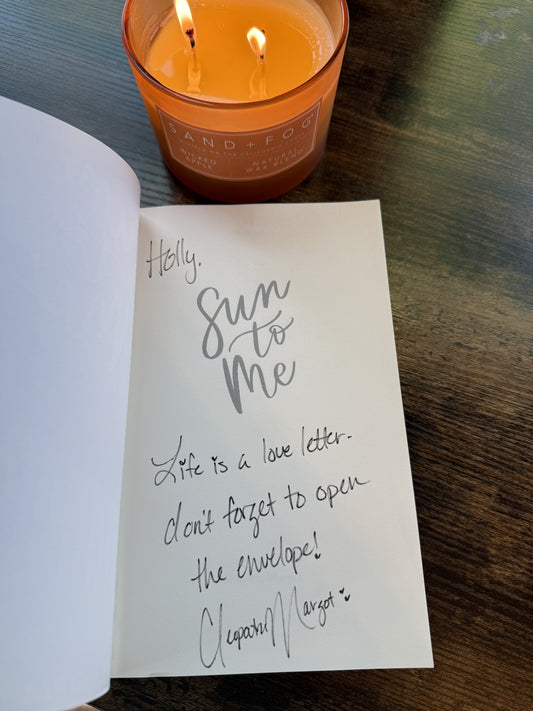 SAND + FOG
WICKED
APPLE
NATURAL
WAX BLEND
Holly,
Sun
to
Me
Life is a love letter-
don't forget to open
the envelope!
Cleopatra Margot